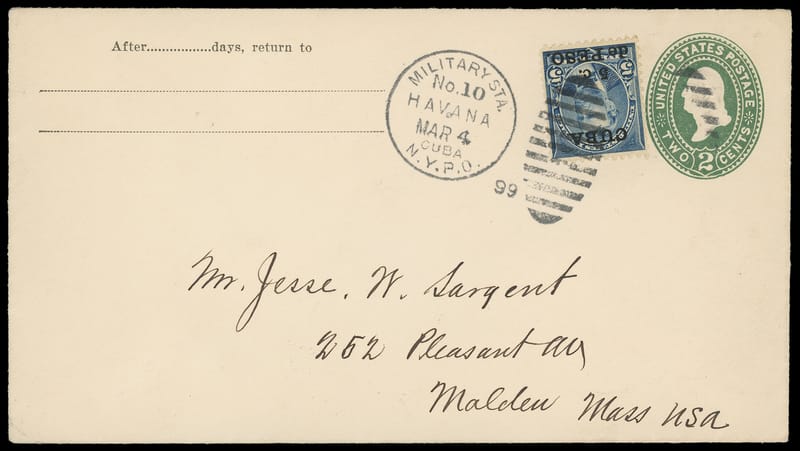 After.................days, return to
MILITARY STA.
No. 10
HAVANA
MAR 4
CUBA
N.Y.P.O.
99
CUBA
5 c.
de PESO
UNITED STATES POSTAGE
TWO 2 CENTS
Mr. Jesse. W. Sargent
252 Pleasant Av
Malden Mass USA